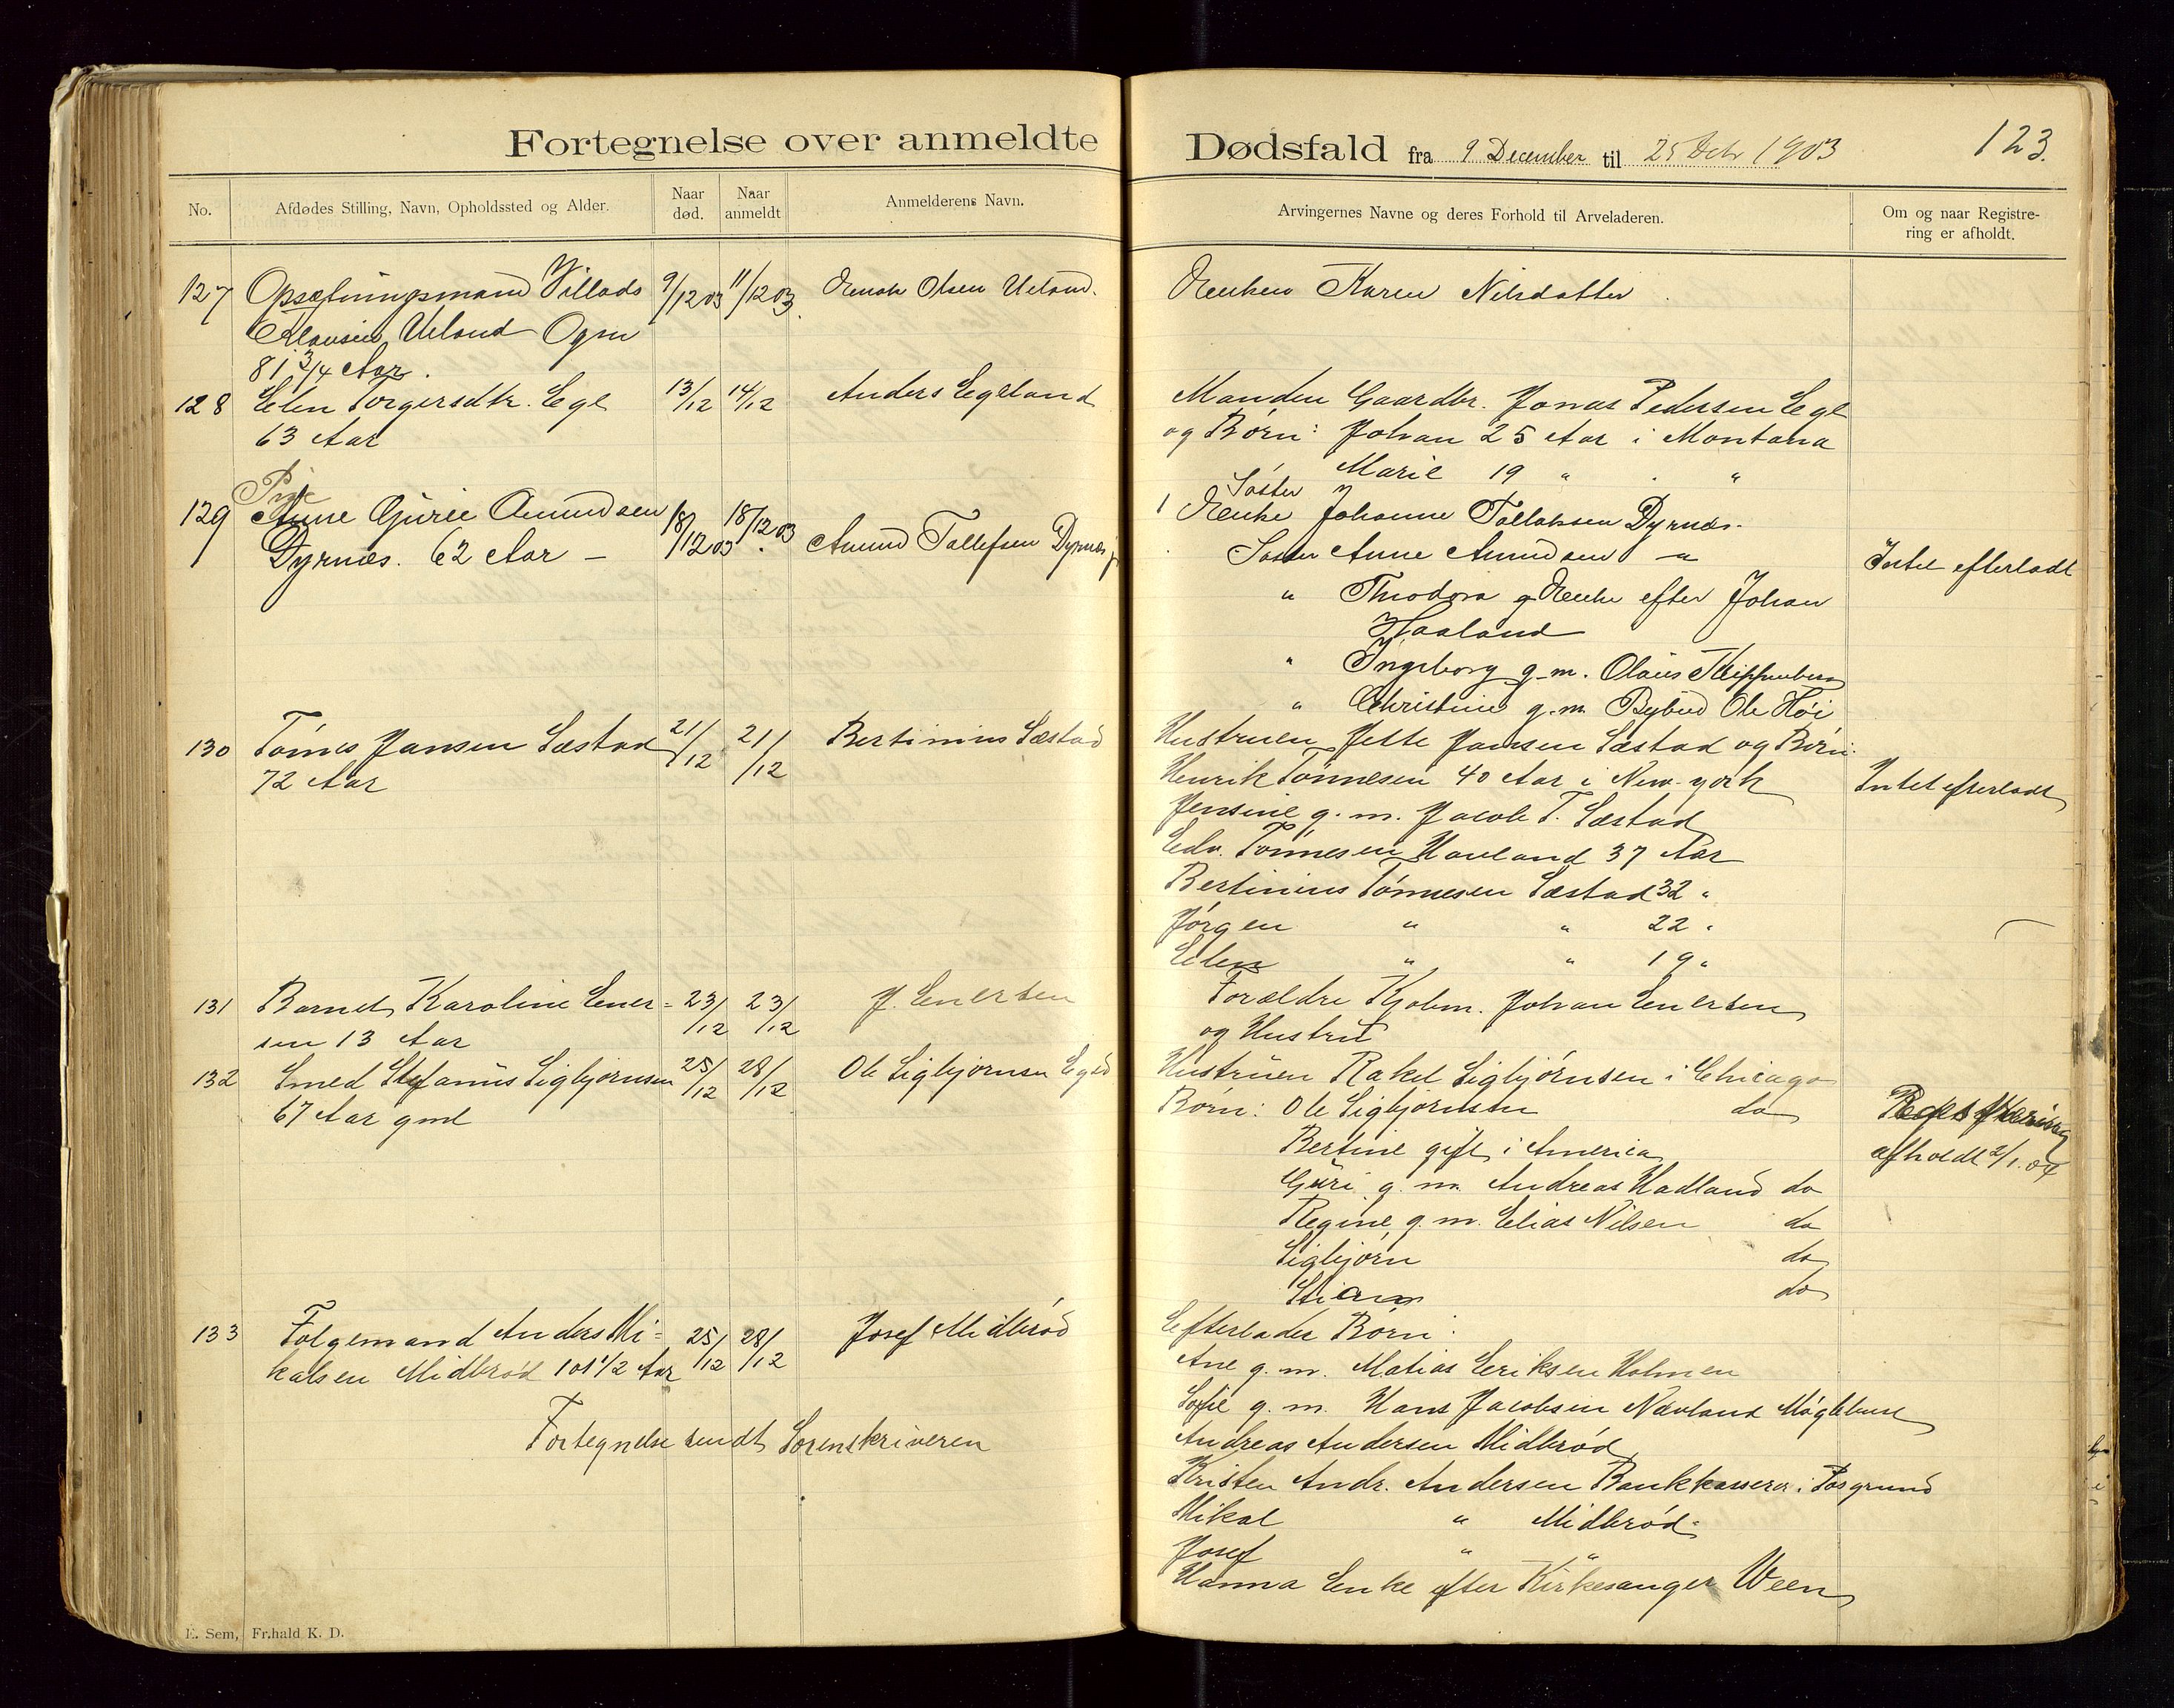 Fortegnelse over anmeldte Dødsfald fra 9 December til 25 Decbr 1903
123.
No.
Afdødes Stilling, Navn, Opholdssted og Alder.
Naar død.
Naar anmeldt
Anmelderens Navn.
Arvingernes Navne og deres Forhold til Arveladeren.
Om og naar Registre-
ring er afholdt.
127 Opsætningsmand Villads 9/12 03 11/12 03. Olsen Ueland. Enken Karen Nilsdatter.
Clausen Ueland Ogm
81 3/4 Aar.
128 Elen Torgersdtr. Egl 13/12 14/12 Anders Egeland Manden Gaardbr. Jonas Pedersen Egl
63 Aar og Børn: Johan 25 Aar i Montana
Marie 19 " . "
Pige Søster
129 Anne Gurie Amundsen 18/12 03 18/12 03. Amund Tallefsen Dyrnæs 1 Enke Johanne Tallaksen Dyrnæs.
Dyrnæs. 62 Aar – Søster Anne Amundsen " Intet efterladt
" Theodora g Enke efter Johan
Haaland
" Ingeborg g.m. Olaus
" Christine g.m. Bybud Ole Høi
130 Tønnes Jansen Sæstad 21/12 21/12 Bertinius Sæstad Hustruen Jette Jansen Sæstad og Børn:
72 Aar Henrik Tønnesen 40 Aar i New-york Intet efterladt
Jensine g.m. Jacob T. Sæstad
Edv. Tønnesen Hauland 37 Aar
Bertinius Tønnesen Sæstad 32 "
Jørgen " " 22 "
Elen " " 19 "
131 Barnet Karoline Ener= 23/12 23/12 J. Enersen Forældre Kjøbm. Johan Enersen
sen 13 Aar og Hustru
132 Smed Stefanus Sigbjørnsen 25/12 28/12 Ole Sigbjørnsen Egsd Hustruen Rakel Sigbjørnsen i Chicago
67 Aar gml Børn: Ole Sigbjørnsen do
Bertine gift i America afholdt 2/1.04
Guri g.m. Andreas Hadland do
Regine g.m. Elias Nilsen do
Sigbjørn do
do
133 Folgemand Anders Mi= 25/12 28/12 Josef Midbrød Efterlader Børn:
kalsen Midbrød 101 1/2 Aar Ane g.m. Matias Eriksen Holmen
Sofie g.m. Hans Jacobsen Nævland Møglebust
Fortegnelse sendt Sorenskriveren
Andreas Andersen Midbrød
Kristen Andr. Andersen Bankkasserer i Porsgrund
Mikal " Midbrød.
Josef " "
Hanna Enke efter Kirkesanger Ween
E. Sem, Fr.hald K. D.